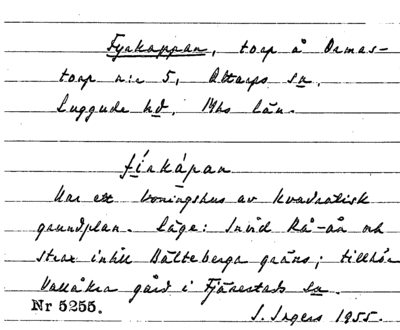 Fyrkappan, torp å Ormas-
torp n:r 5, Ottarps sn.
Luggude hd, Mhs län.
fírkápan
Har ett boningshus av kvadratisk
grundplan. Läge: Invid Rå-ån och
strax intill Bälteberga gräns; tillhör
Vallåkra gård i Fjärestads sn.
Nr 5255.
I. Ingers 1955.